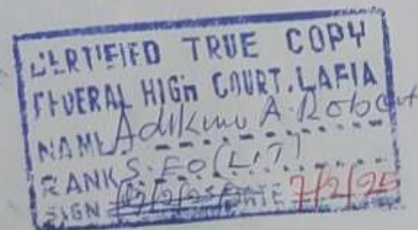 CERTIFIED TRUE COPY
FEDERAL HIGH COURT, LAFIA
NAME Adikwu A. Robert
RANK S.EO(LIT)
SIGN DATE 7/2/25